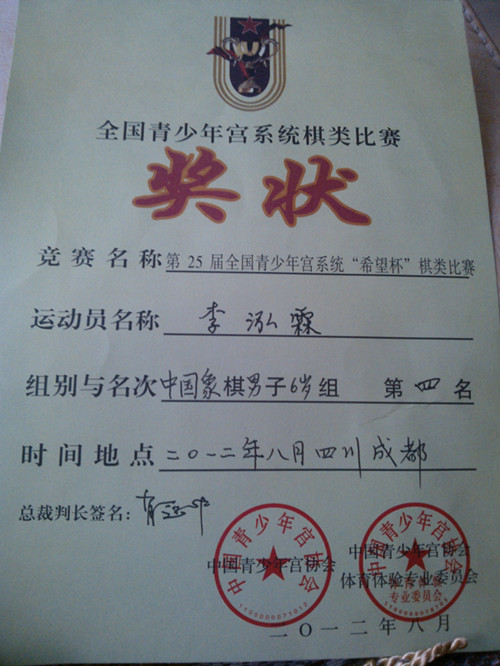 全国青少年宫系统棋类比赛
奖状
竞赛名称 第25届全国青少年宫系统“希望杯”棋类比赛
运动员名称 李泓霖
组别与名次 中国象棋男子6岁组 第四名
时间地点 二〇一二年八月四川成都
总裁判长签名:
中国青少年宫协会
中国青少年宫协会
中国青少年宫协会
体育体验专业委员会
中国青少年宫协会
专业委员会
二〇一二年八月